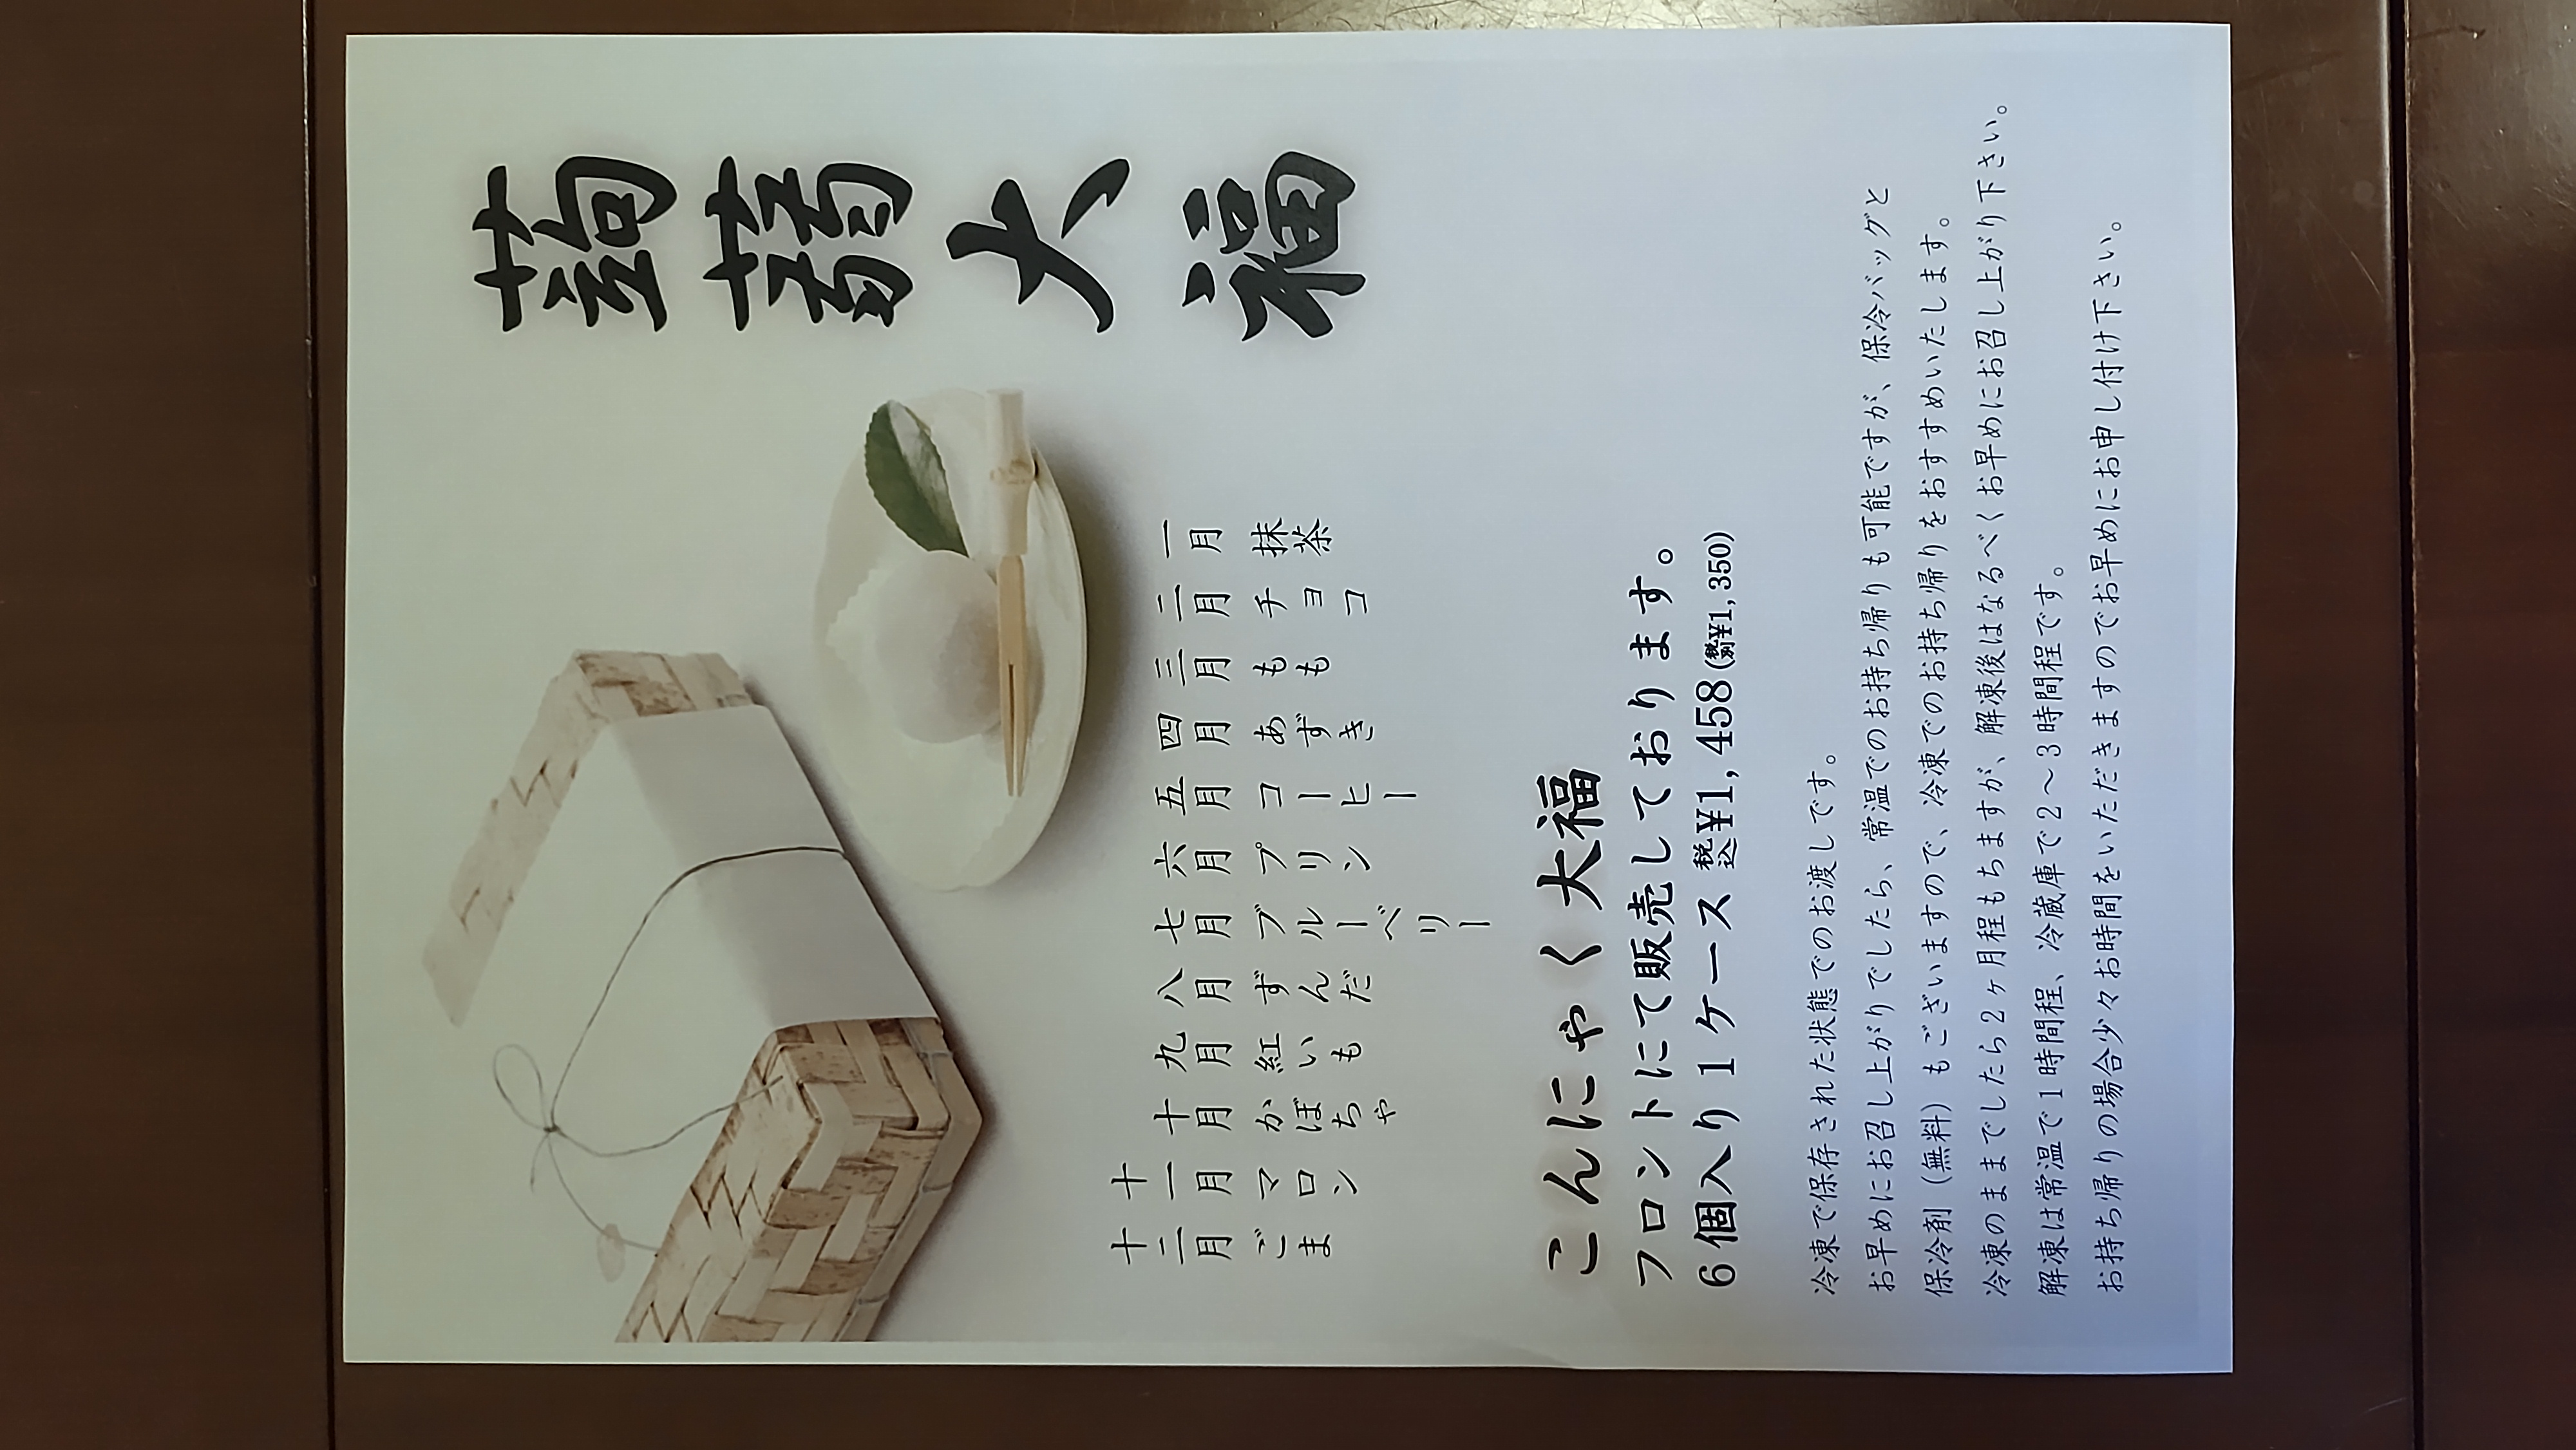 蒟蒻大福
一月 抹茶
二月 チョコ
三月 もも
四月 あずき
五月 コーヒー
六月 プリン
七月 ブルーベリー
八月 ずんだ
九月 紅いも
十月 かぼちゃ
十一月 マロン
十二月 ごま
こんにゃく大福
フロントにて販売しております。
6個入り1ケース 税込¥1,458(税別¥1,350)
冷凍で保存された状態でのお渡しです。
お早めにお召し上がりでしたら、常温でのお持ち帰りも可能ですが、保冷バッグと
保冷剤(無料)もございますので、冷凍でのお持ち帰りをおすすめいたします。
冷凍のままでしたら2ヶ月程もちますが、解凍後はなるべくお早めにお召し上がり下さい。
解凍は常温で1時間程、冷蔵庫で2〜3時間程です。
お持ち帰りの場合少々お時間をいただきますのでお早めにお申し付け下さい。